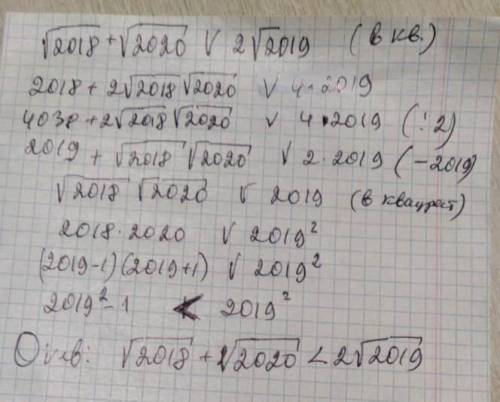 √2018 + √2020 V 2√2019 (в кв.)
2018 + 2√2018 √2020 V 4·2019
4038 + 2√2018 √2020 V 4·2019 (:2)
2019 + √2018 √2020 V 2·2019 (-2019)
√2018 √2020 V 2019 (в квадрат)
2018·2020 V 2019²
(2019-1)(2019+1) V 2019²
2019²-1 < 2019²
Ответ: √2018 + 2√2020 < 2√2019